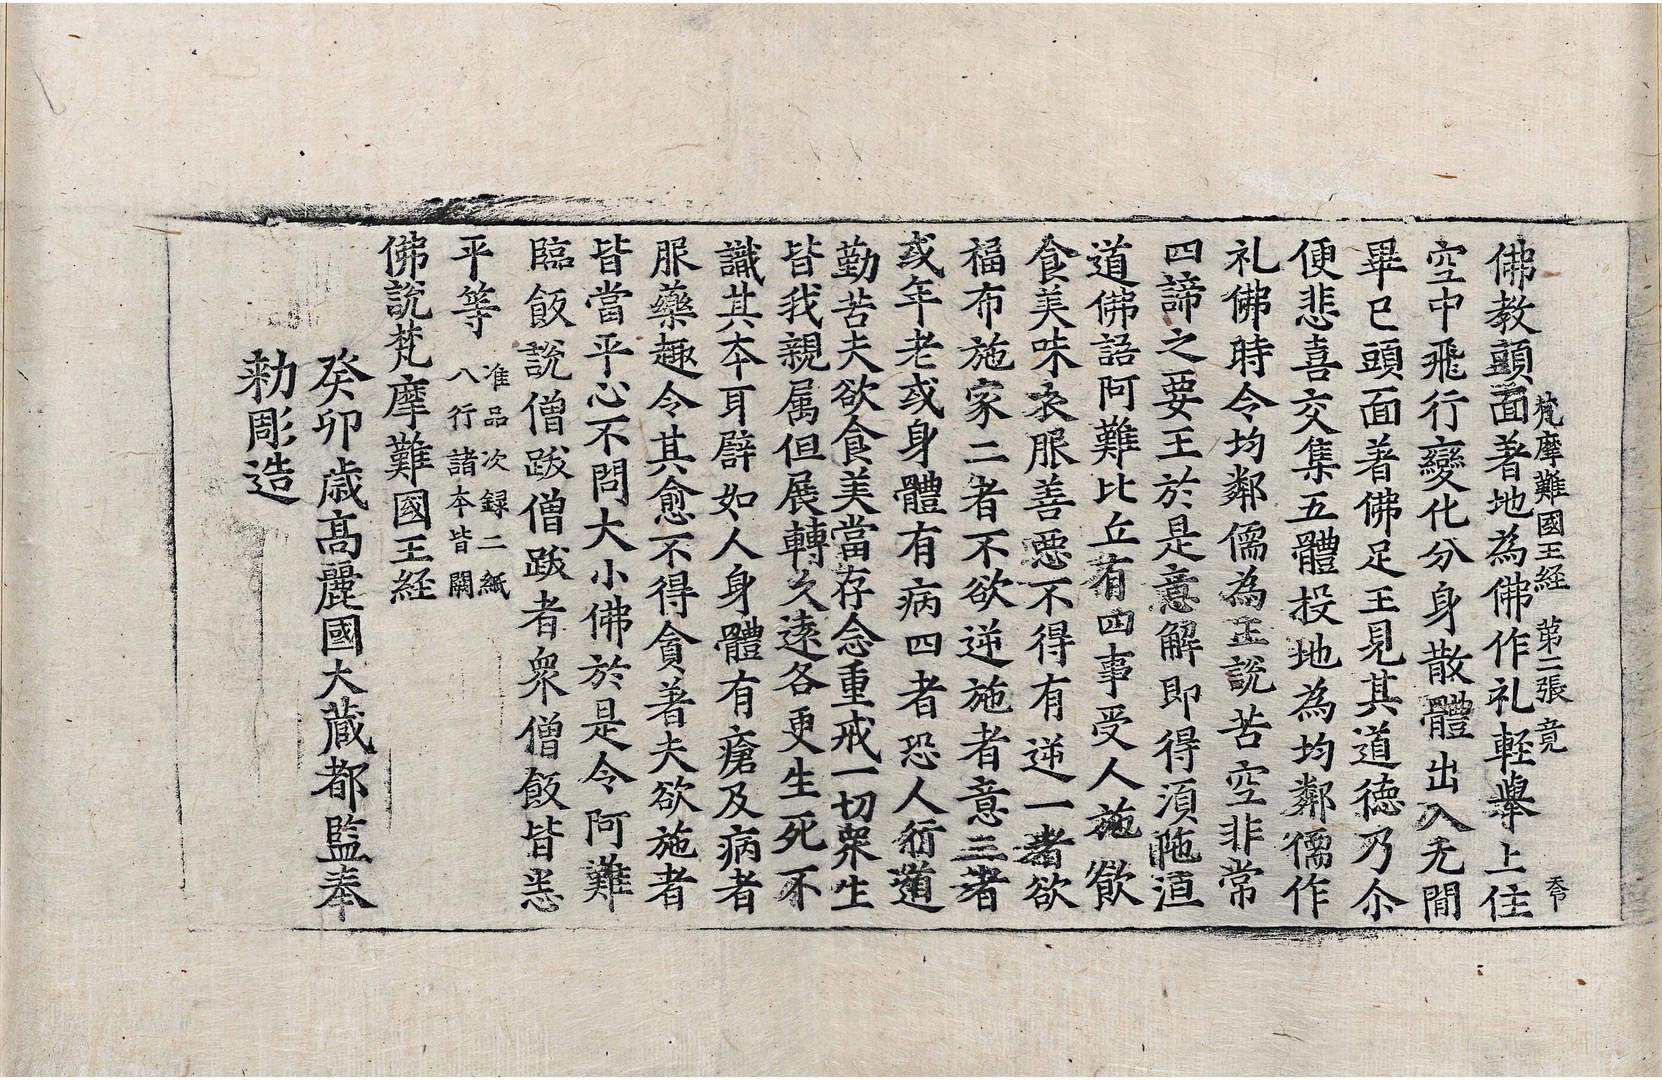 梵摩難國王經 第二張 竟
佛教頭面著地為佛作礼軽舉上住
空中飛行變化分身散體出入无間
畢已頭面著佛足王見其道德乃尒
便悲喜交集五體投地為均鄰儒作
礼佛時令均鄰儒為王說苦空非常
四諦之要王於是意解即得湏陁洹
道佛語阿難比丘有四事受人施欲
食美味衣服善惡不得有逆一者欲
福布施家二者不欲逆施者意三者
或年老或身體有病四者恐人行道
勤苦夫欲食美當存念重戒一切衆生
皆我親属但展轉久遠各更生死不
識其夲耳譬如人身體有瘡及病者
服藥趣令其愈不得貪著夫欲施者
皆當平心不問大小佛於是令阿難
臨飯說僧跋僧跋者衆僧飯皆悉
平等 准品次録二紙
八行諸本皆闕
佛說梵摩難國王経
癸卯歳高麗國大藏都監奉
勑彫造